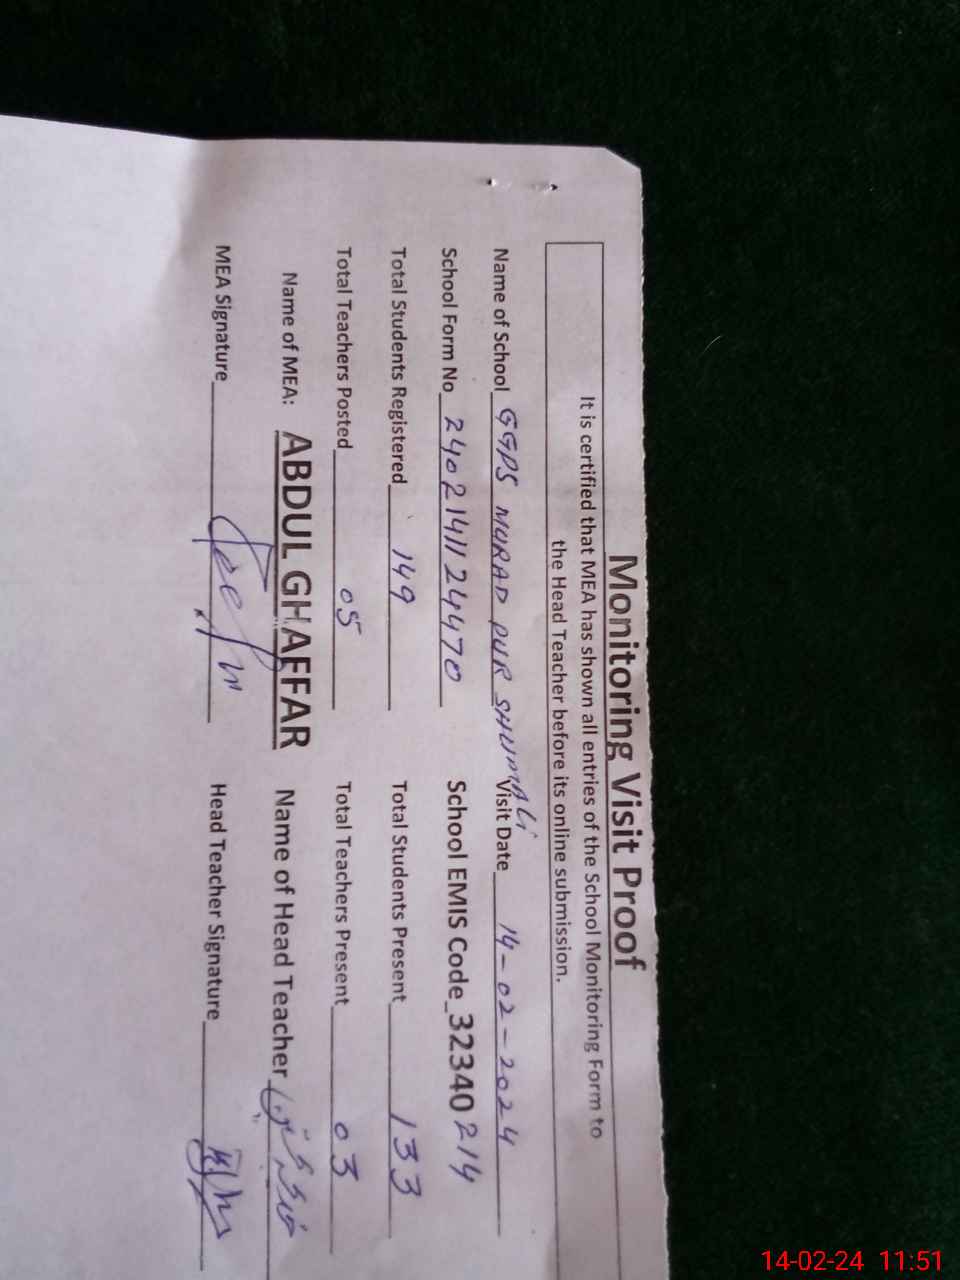 Monitoring Visit Proof
It is certified that MEA has shown all entries of the School Monitoring Form to
the Head Teacher before its online submission.
Name of School GGPS MURAD PUR SHUMALi Visit Date 14-02-2024
School Form No 2402141124470 School EMIS Code_32340214
Total Students Registered 149 Total Students Present 133
Total Teachers Posted 05 Total Teachers Present 03
Name of MEA: ABDUL GHAFFAR Name of Head Teacher
MEA Signature Head Teacher Signature
14-02-24 11:51